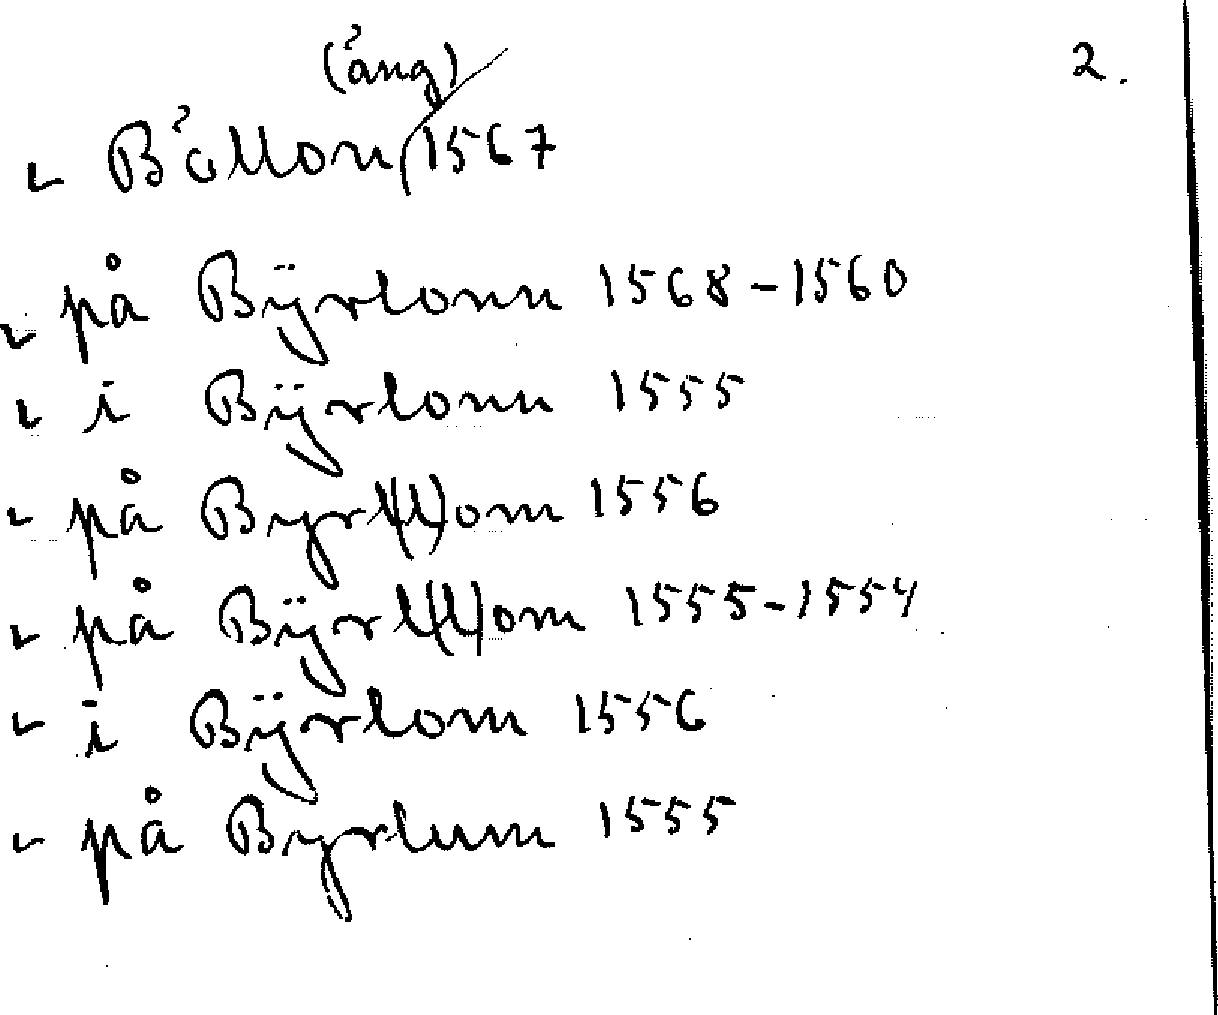 (ång) 2.
Bållon 1567
på Bÿrlonn 1568-1560
i Bÿrlonn 1555
på Byrl(l)om 1556
på Bÿrl(l)om 1555-1554
i Bÿrlom 1556
på Byrlum 1555